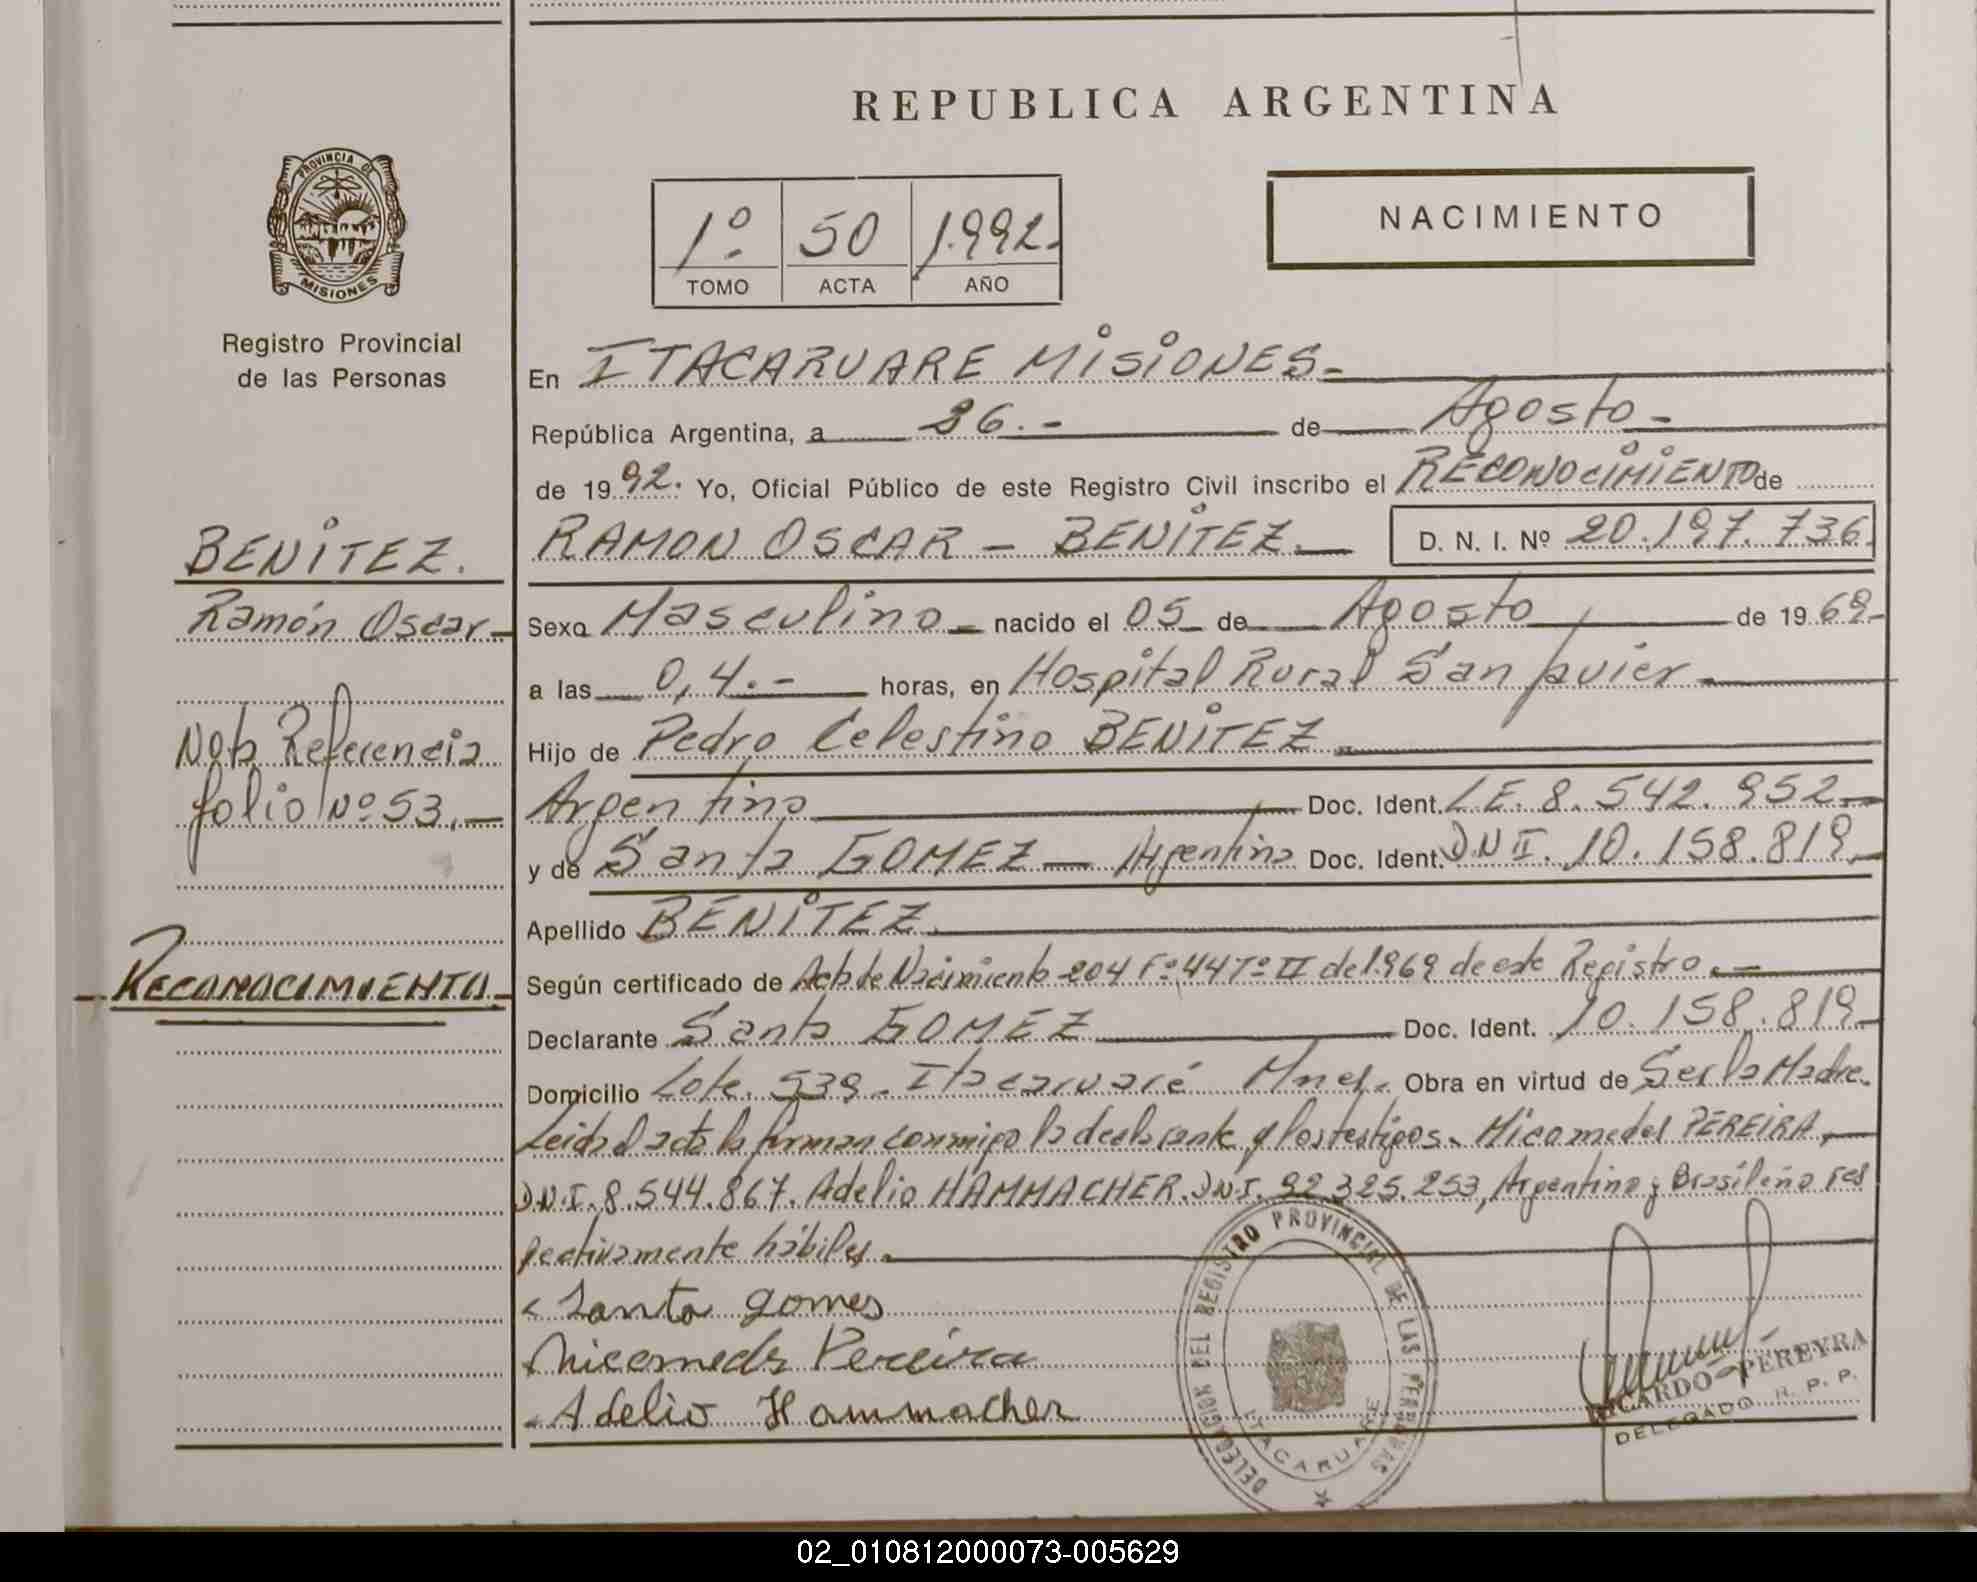 REPUBLICA ARGENTINA
PROVINCIA DE
MISIONES
Registro Provincial
de las Personas
1º 50 1.992.-
TOMO ACTA AÑO
NACIMIENTO
En ITACARUARE MISIONES.-
República Argentina, a 26.- de Agosto.-
de 1992. Yo, Oficial Público de este Registro Civil inscribo el RECONOCIMIENTO de
BENITEZ.
RAMON OSCAR - BENITEZ.- D. N. I. Nº 20.197.736.
Ramón Oscar-
Sexo Masculino.- nacido el 05 de Agosto de 1969.-
a las 0,4.- horas, en Hospital Rural San Javier.-
Nota Referencia
Hijo de Pedro Celestino BENITEZ.-
folio Nº 53.-
Argentino Doc. Ident. L.E. 8.542.952.-
y de Santa GOMEZ - Argentina Doc. Ident. D.N.I. 10.158.819.-
Apellido BENITEZ.
- RECONOCIMIENTO.-
Según certificado de Acta de Nacimiento 204 Fº 44 Tº II del 1.969 de este Registro.-
Declarante Santa GOMEZ Doc. Ident. 10.158.819.-
Domicilio Lote. 539.- Itacaruaré Mnes.- Obra en virtud de Ser la Madre.
Leida el acta la firman conmigo la declarante y los testigos. Nicomedes PEREIRA,-
D.N.I. 8.544.867. Adelio HAMMACHER. D.N.I. 92.325.253, Argentino y Brasileño res
pectivamente hábiles.-
Santa gomes
Nicomedes Pereira
Adelio Hammacher
DELEGACION DEL REGISTRO PROVINCIAL DE LAS PERSONAS
ITACARUARE
RICARDO PEREYRA
DELEGADO R. P. P.
02_010812000073-005629